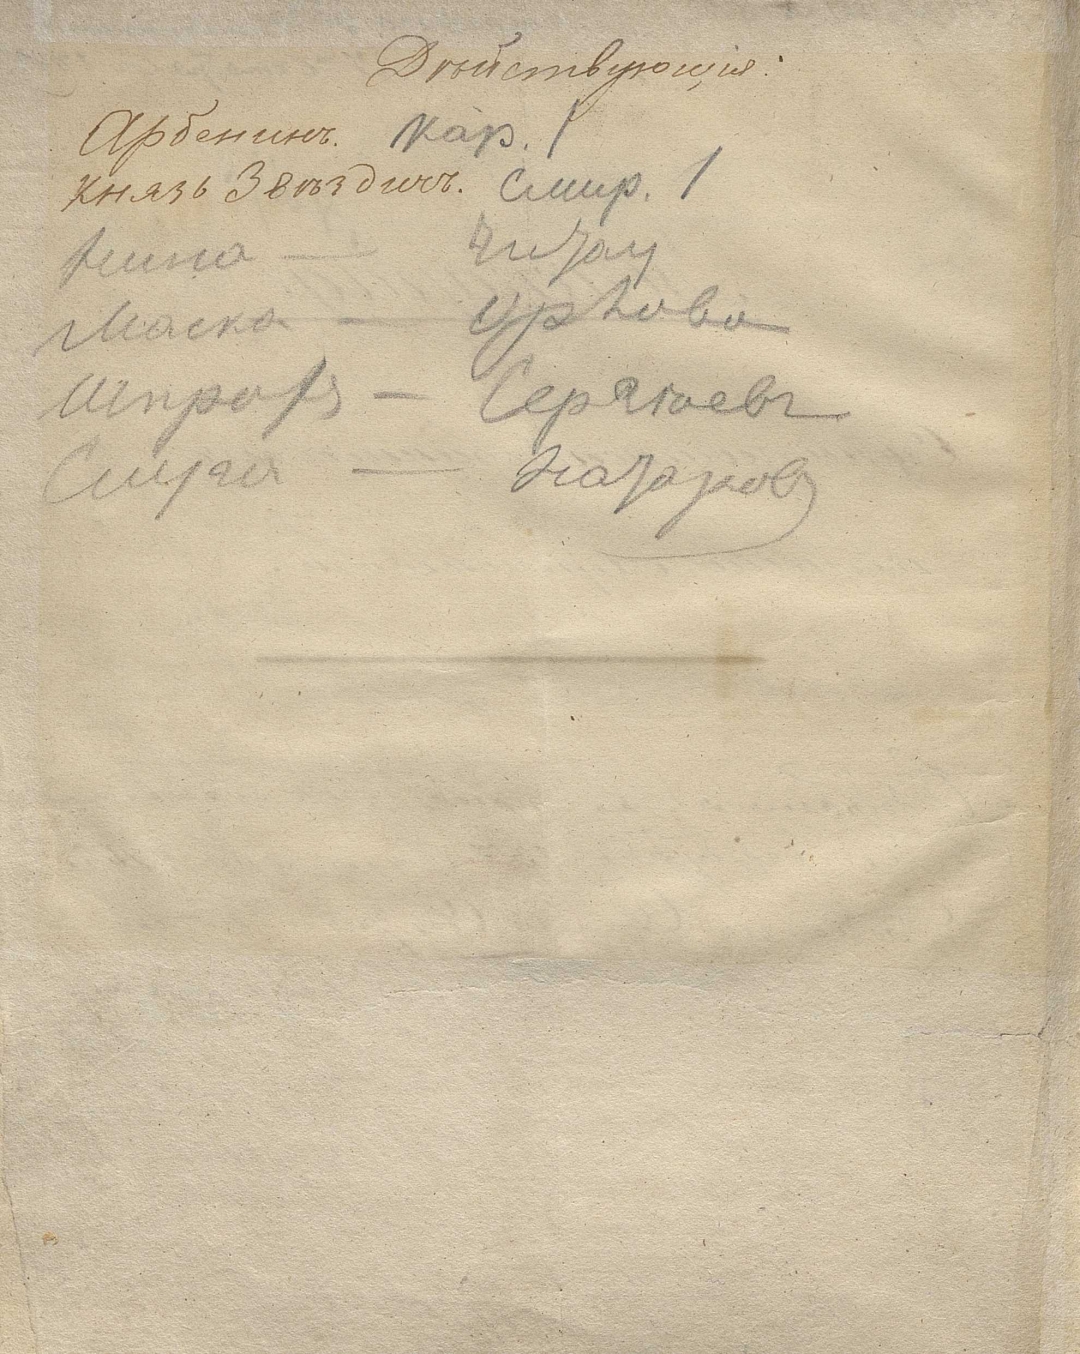 Дѣйствующія:
Арбенинъ. Кар. 1
Князь Звѣздичъ. Смир. 1
Нина — Читау
Маска — Орлова
Шприхъ —
Слуга — Назаровъ